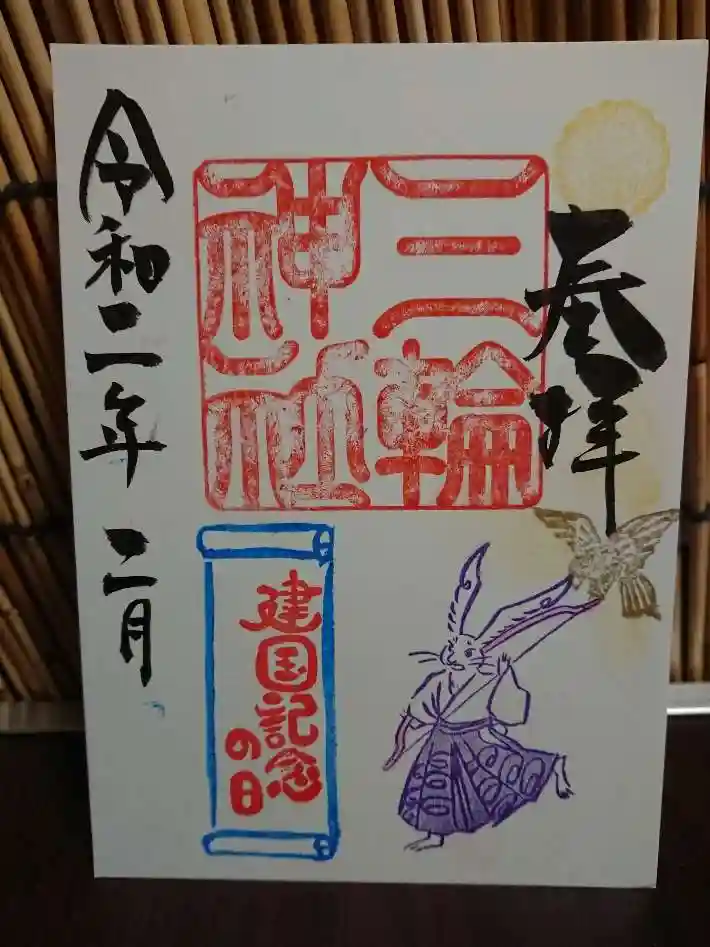 奉拝
三輪
神社
建国記念
の日
令和二年 二月